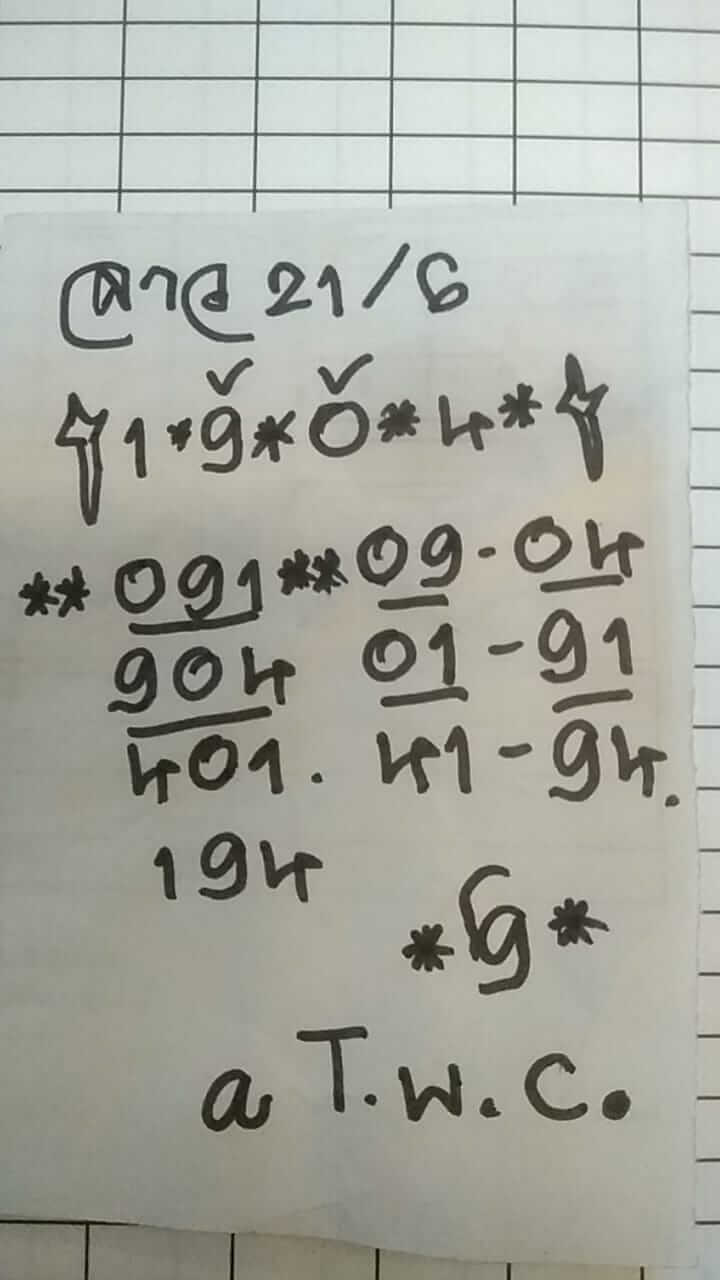 ลาว 21/6
1*9*0*4*
**091**09-04
904 01-91
401. 41-94.
194
*9*
a T.W.C.